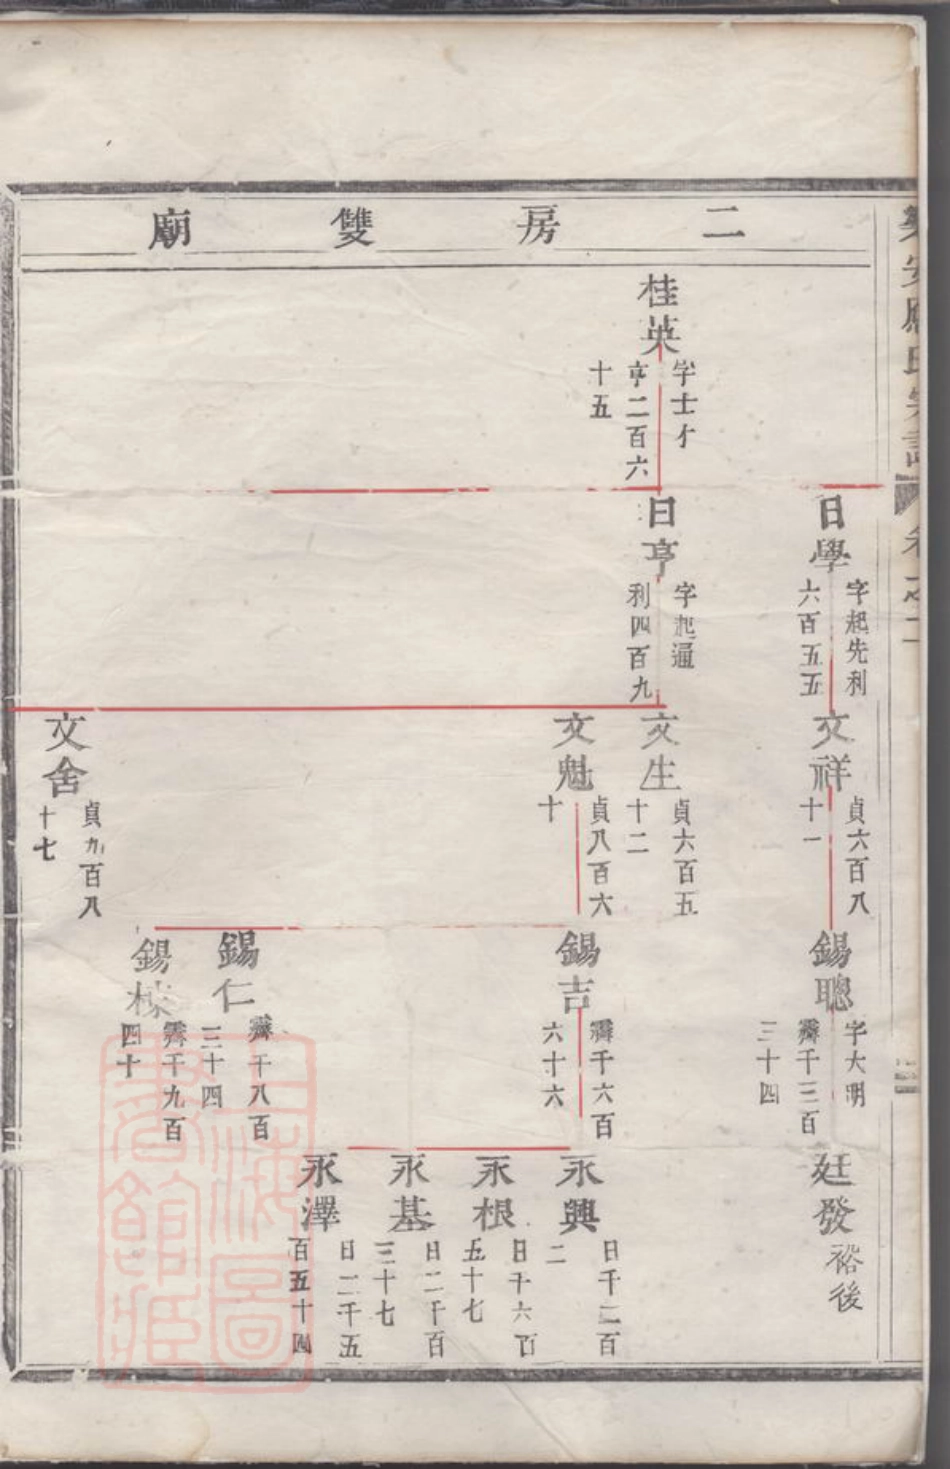 安
氏宗譜
卷之二
二房雙廟
桂英
字士才
亨二百六
十五
日學
字起先利
六百五五
日亨
字起通
利四百九
文祥
貞六百八
十一
文生
貞六百五
十二
文魁
貞八百六
十
文舍
貞九百八
十七
錫聰
字大明
霽千三百
三十四
錫吉
霽千六百
六十六
錫仁
霽千八百
三十四
錫棟
霽千九百
四十
廷發
裕後
永興
日千二百
二
永根
日千六百
五十七
永基
日二千百
三十七
永澤
日二千五
百五十四
上海圖
書館藏